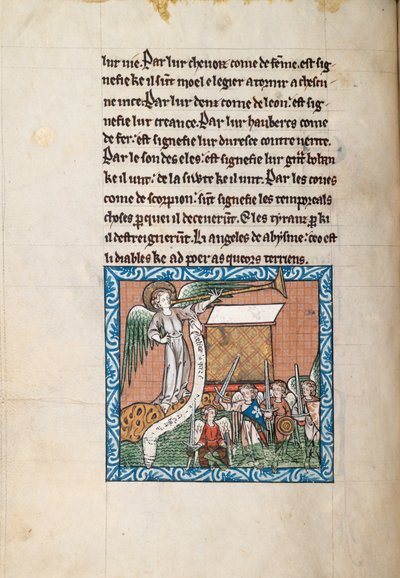 lur uie. Par lur cheuoz come de feme. est sig-
nefie ke il sunt moel e legier a tornir a chescu-
ne uice. Par lur denz come de leon: est sig-
nefie lur creance. Par lur hauberes come
de fer: est signefie lur duresce contre uerite.
Par le son des eles: est signefie lur
ke il unt: de la ke il unt. Par les coues
come de scorpion: sunt signefie les temporeals
choses par quei il deceuerunt. E les tyranz par ki
il destreignerunt. Li angeles de abysme: ceo est
li diables ke ad poer as queors terriens.